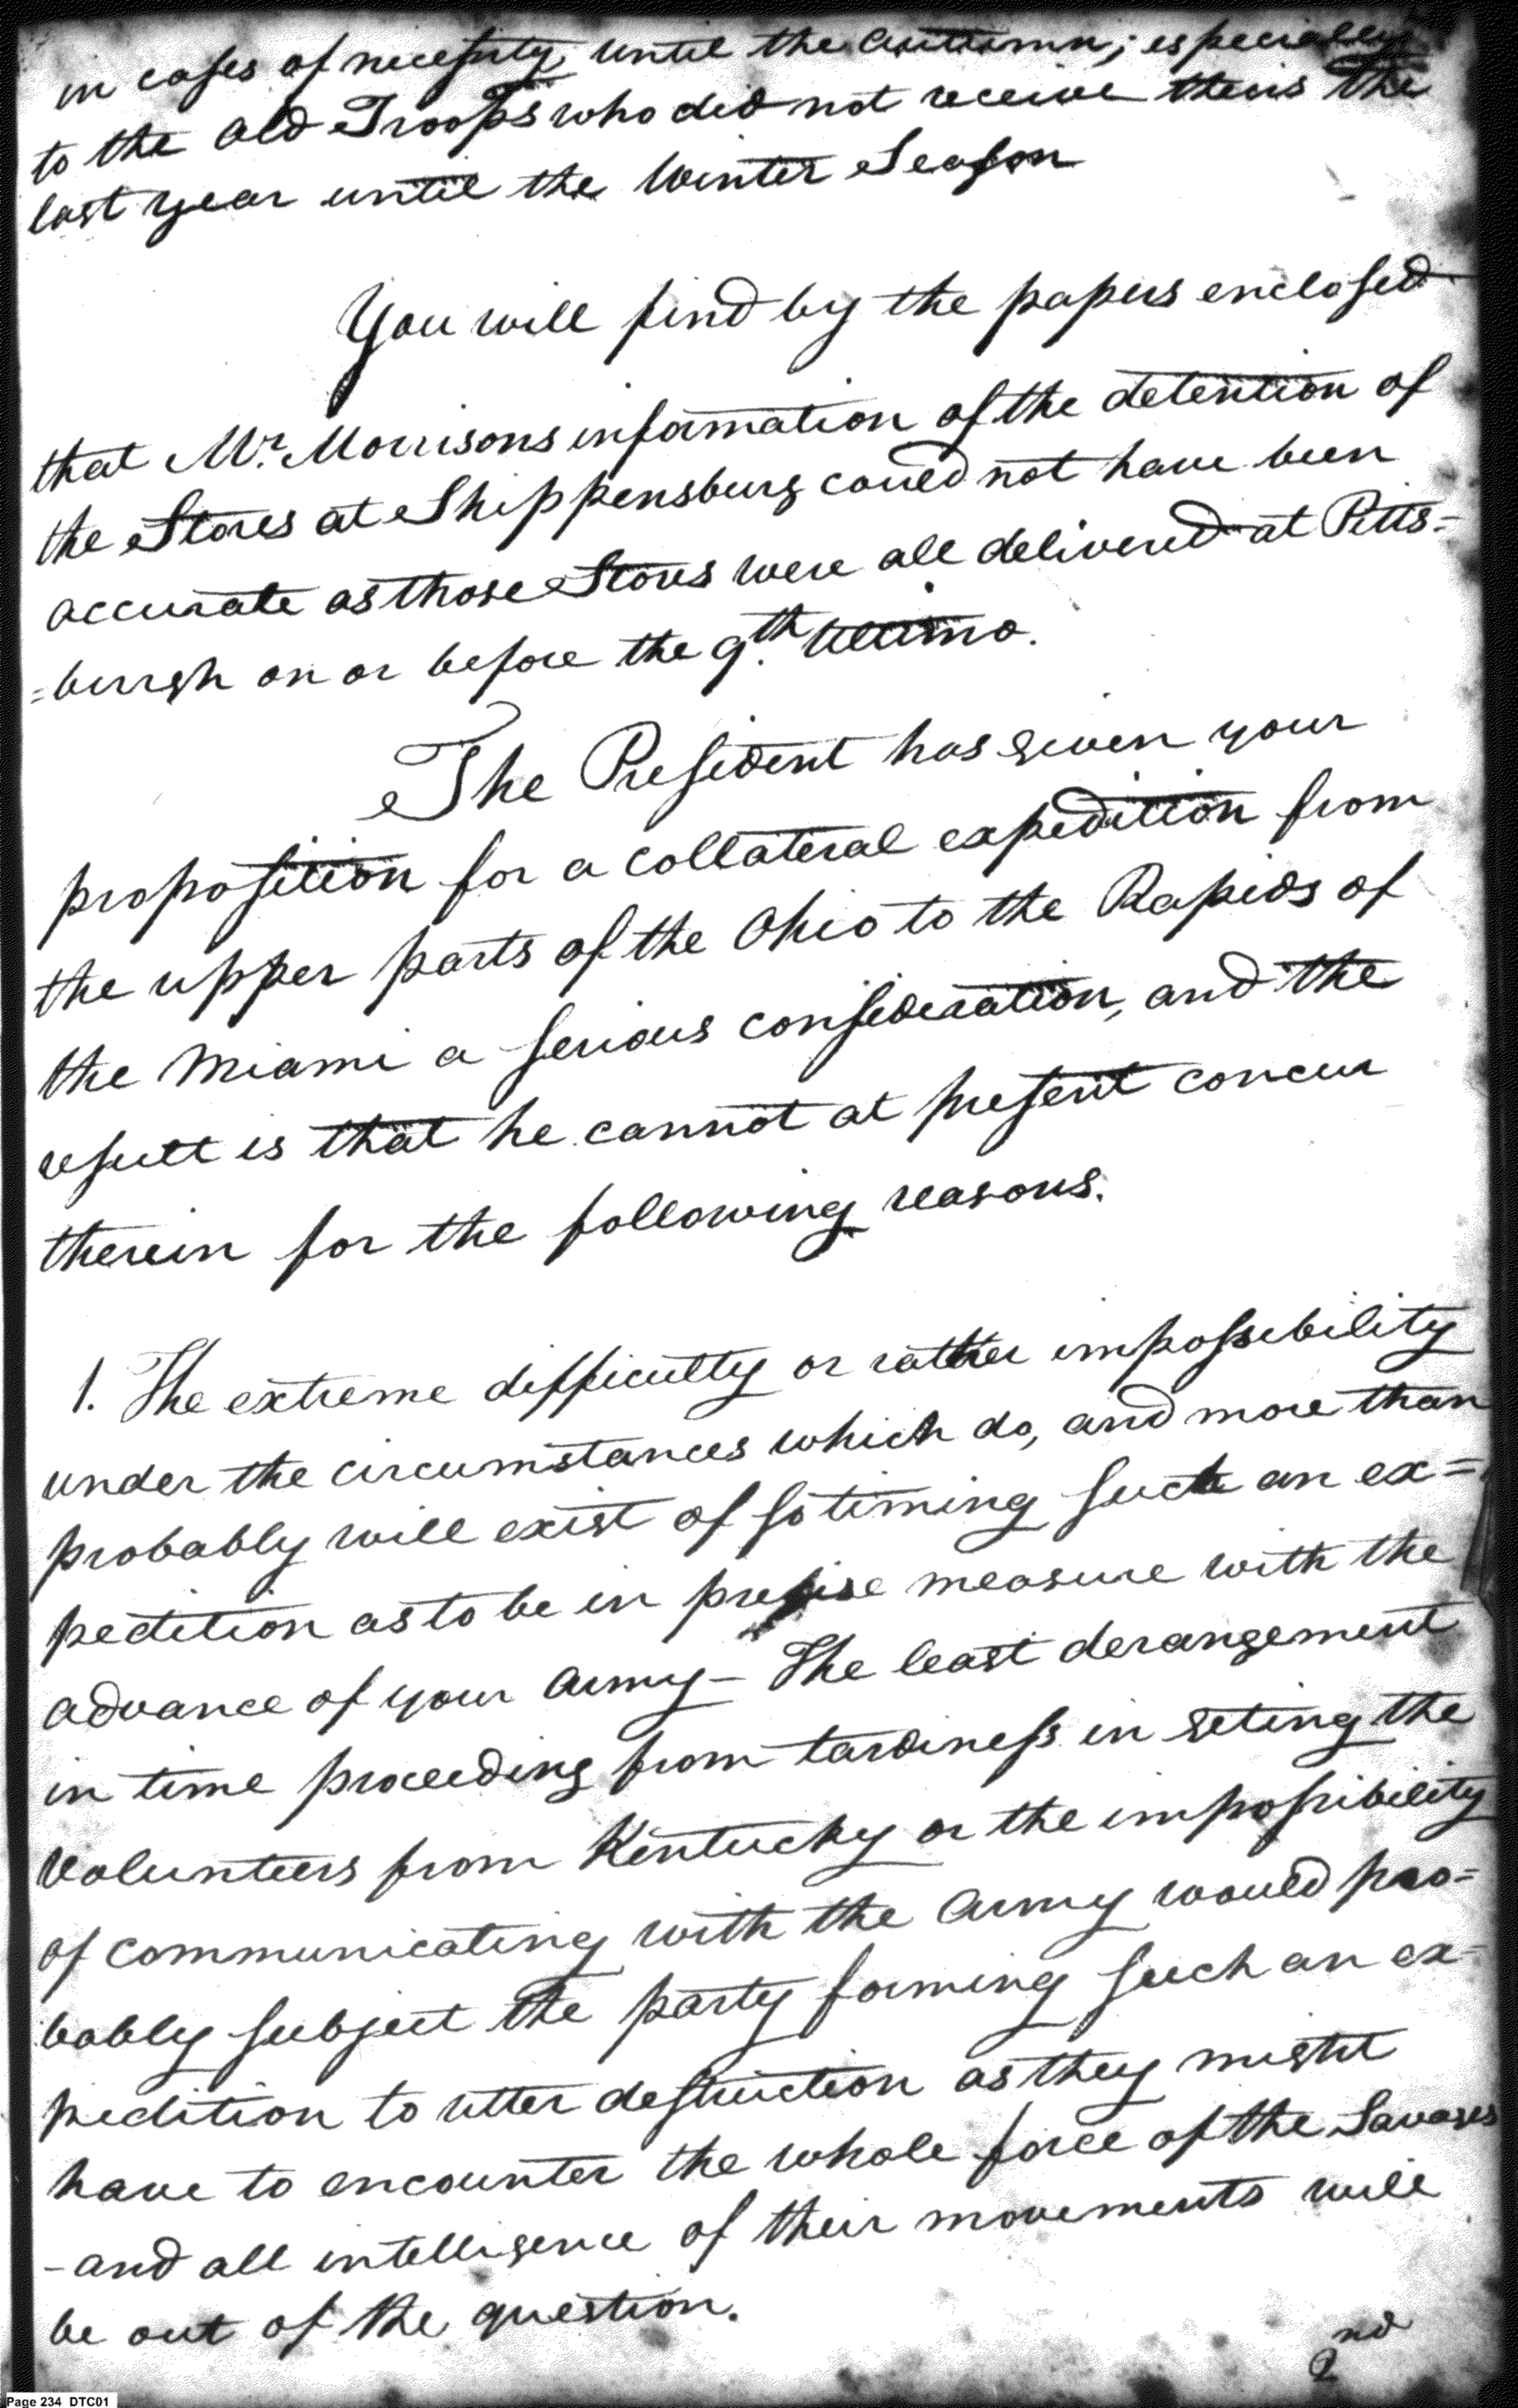 in cases of necessity, until the Autumn; especially
to the old Troops who did not receive theirs the
last year until the Winter Season
You will find by the papers enclosed
that Mr. Morrisons information of the detention of
the Stores at Shippensburg could not have been
accurate as those Stores were all delivered at Pitts=
=burgh on or before the 9th. Ultimo.
The President has given your
proposition for a collateral expedition from
the upper parts of the Ohio to the Rapids of
the Miami a serious consideration, and the
result is that he cannot at present concur
therein for the following reasons.
1. The extreme difficulty or rather impossibility
under the circumstances which do, and more than
probably will exist of so timing such an ex=
pedition as to be in precise measure with the
advance of your Army – The least derangement
in time proceeding from tardiness in seting the
Volunteers from Kentucky or the impossibility
of communicating with the Army would pro=
bably subject the party forming such an ex=
pedition to utter destruction as they might
have to encounter the whole force of the Savages
- and all intelligence of their movements will
be out of the question.
2nd
Page 234 DTC01